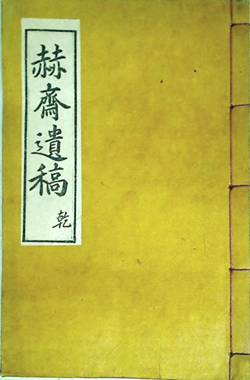 赫齋遺稿
乾